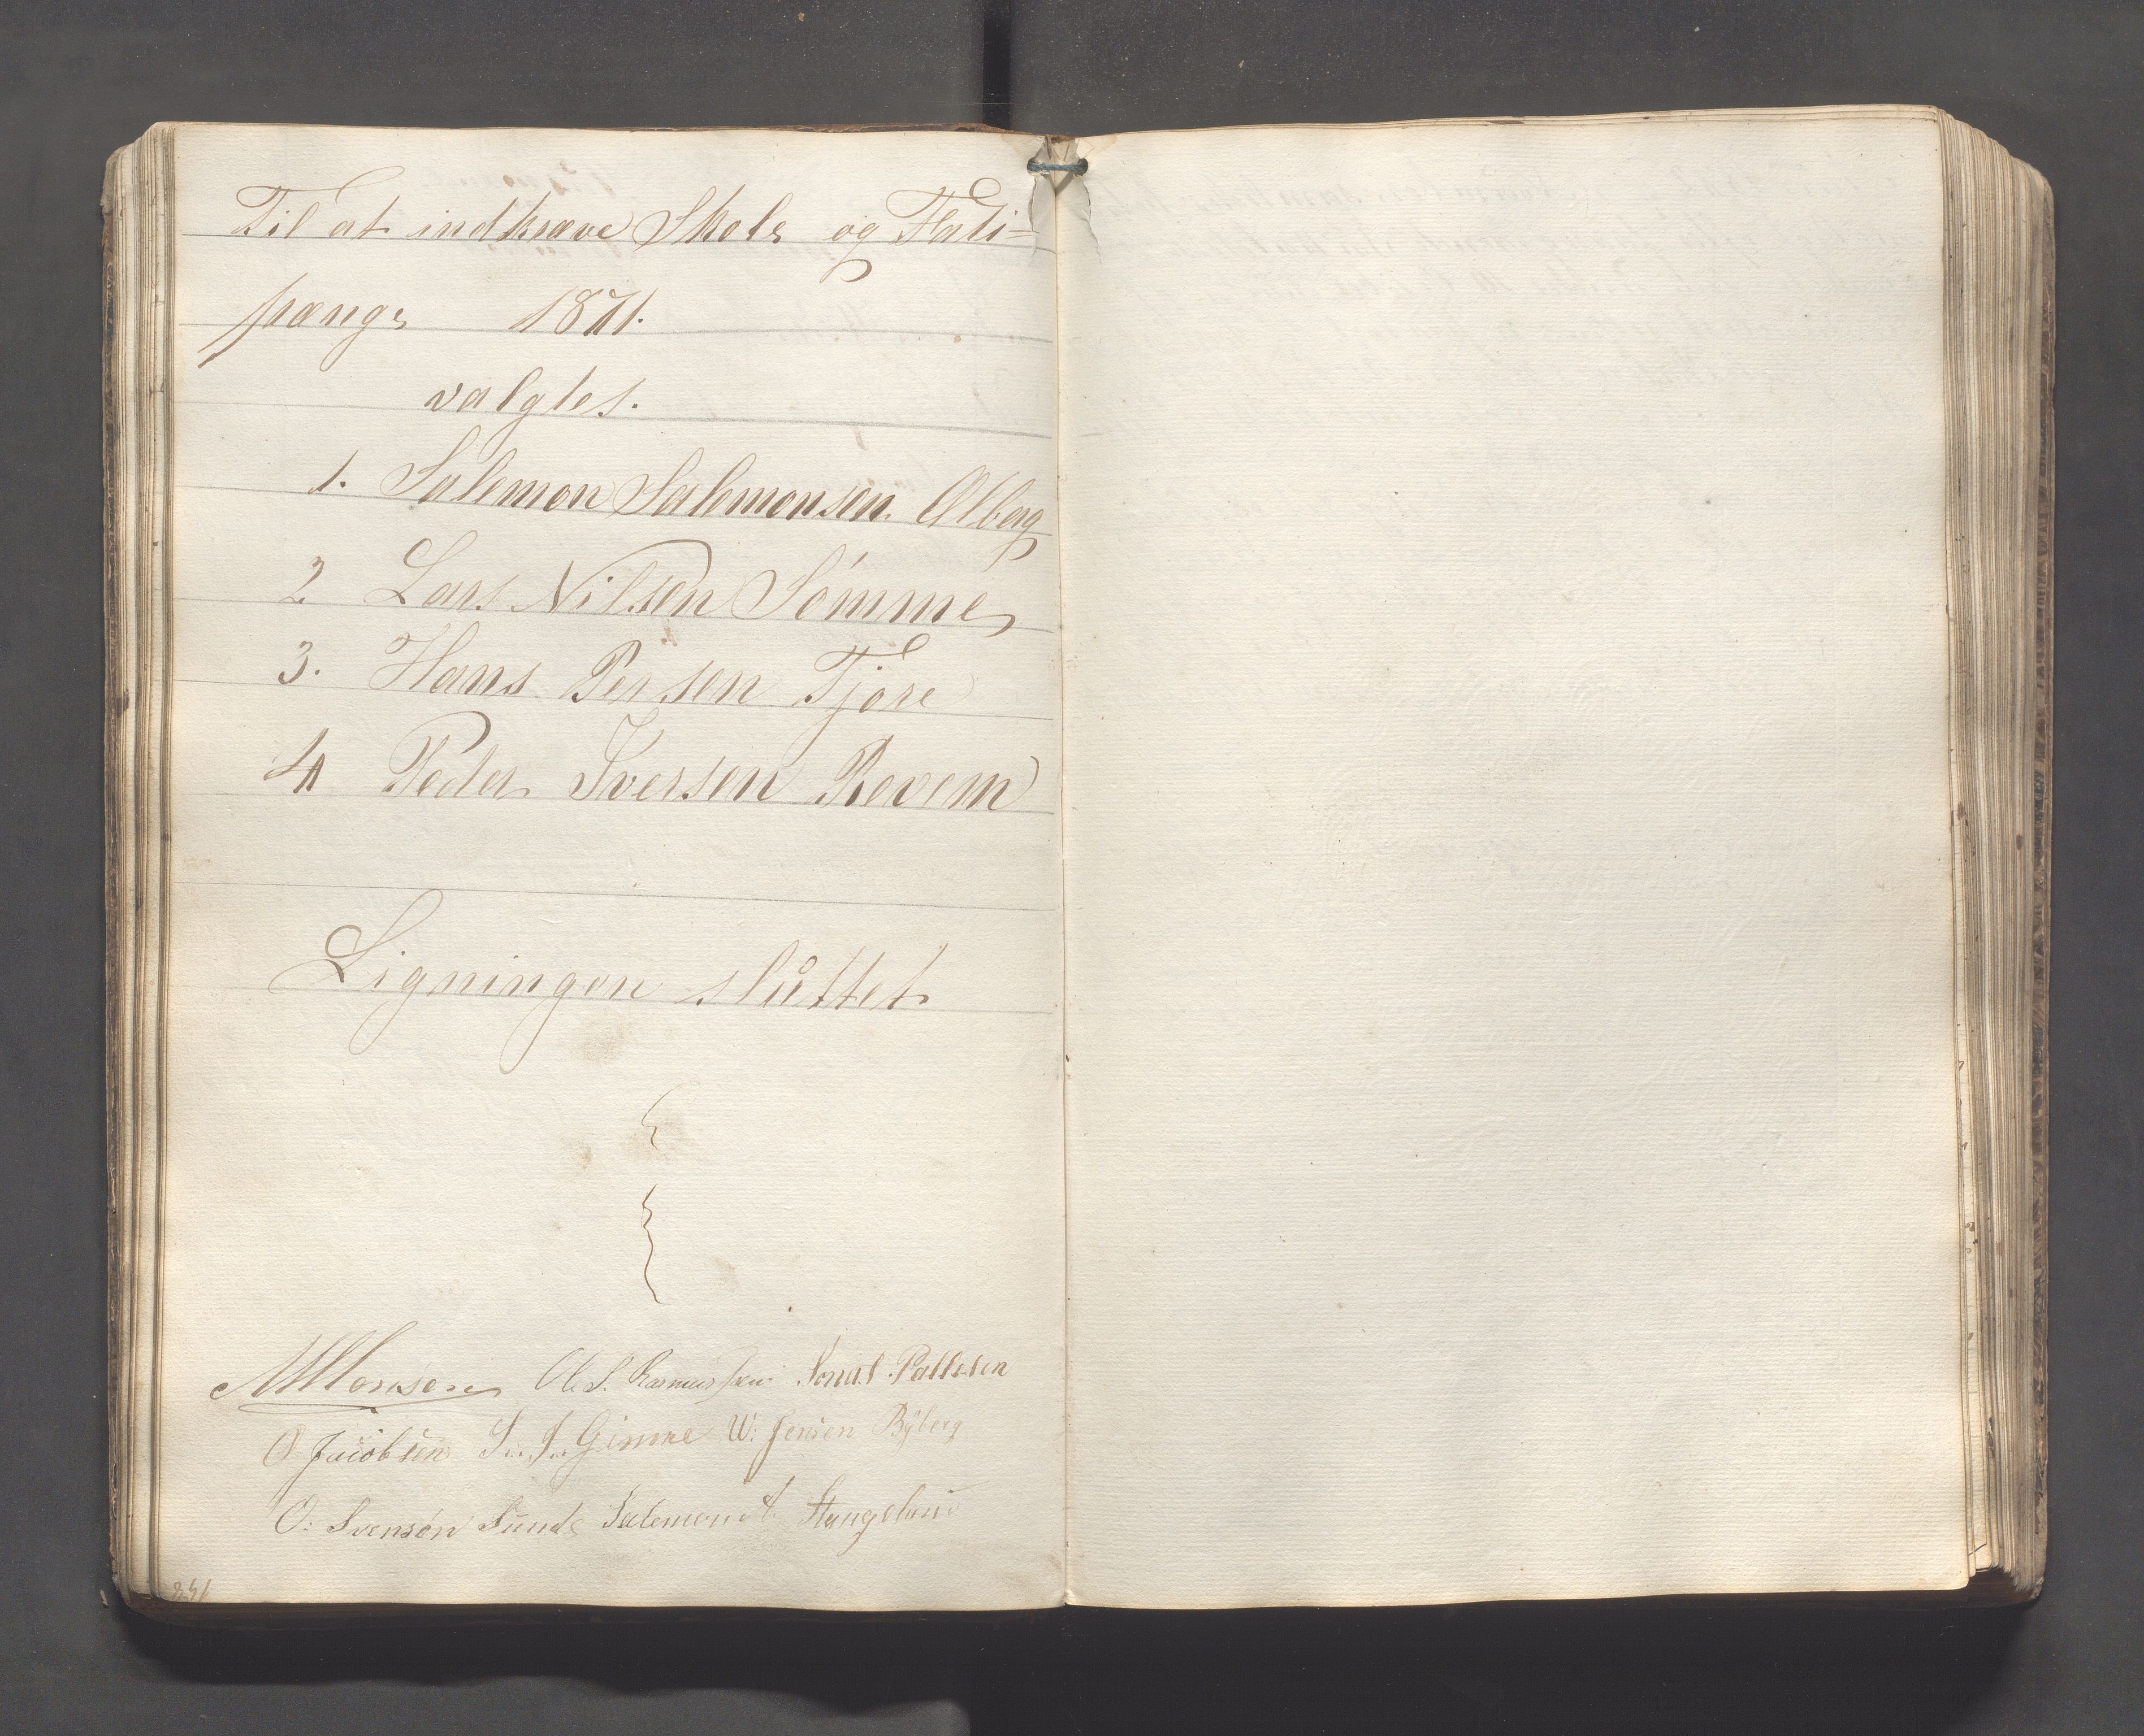 Til at indkræve Skole og Fati=
pænge 1871.
valgtes.
1. Salemon Salemonsen Ølberg
2 Lars Nilsen Sömme
3. Hans Persen Tjore
4 Peder Iversen Revem
Ligningen slŭttet
M Monsen Ole S. Rasmussen Jonas Pallesen
O Jacobsen S. J. Gimre W: Jensen Bÿberg
O: Svensøn Sŭnde Salemon Stangeland